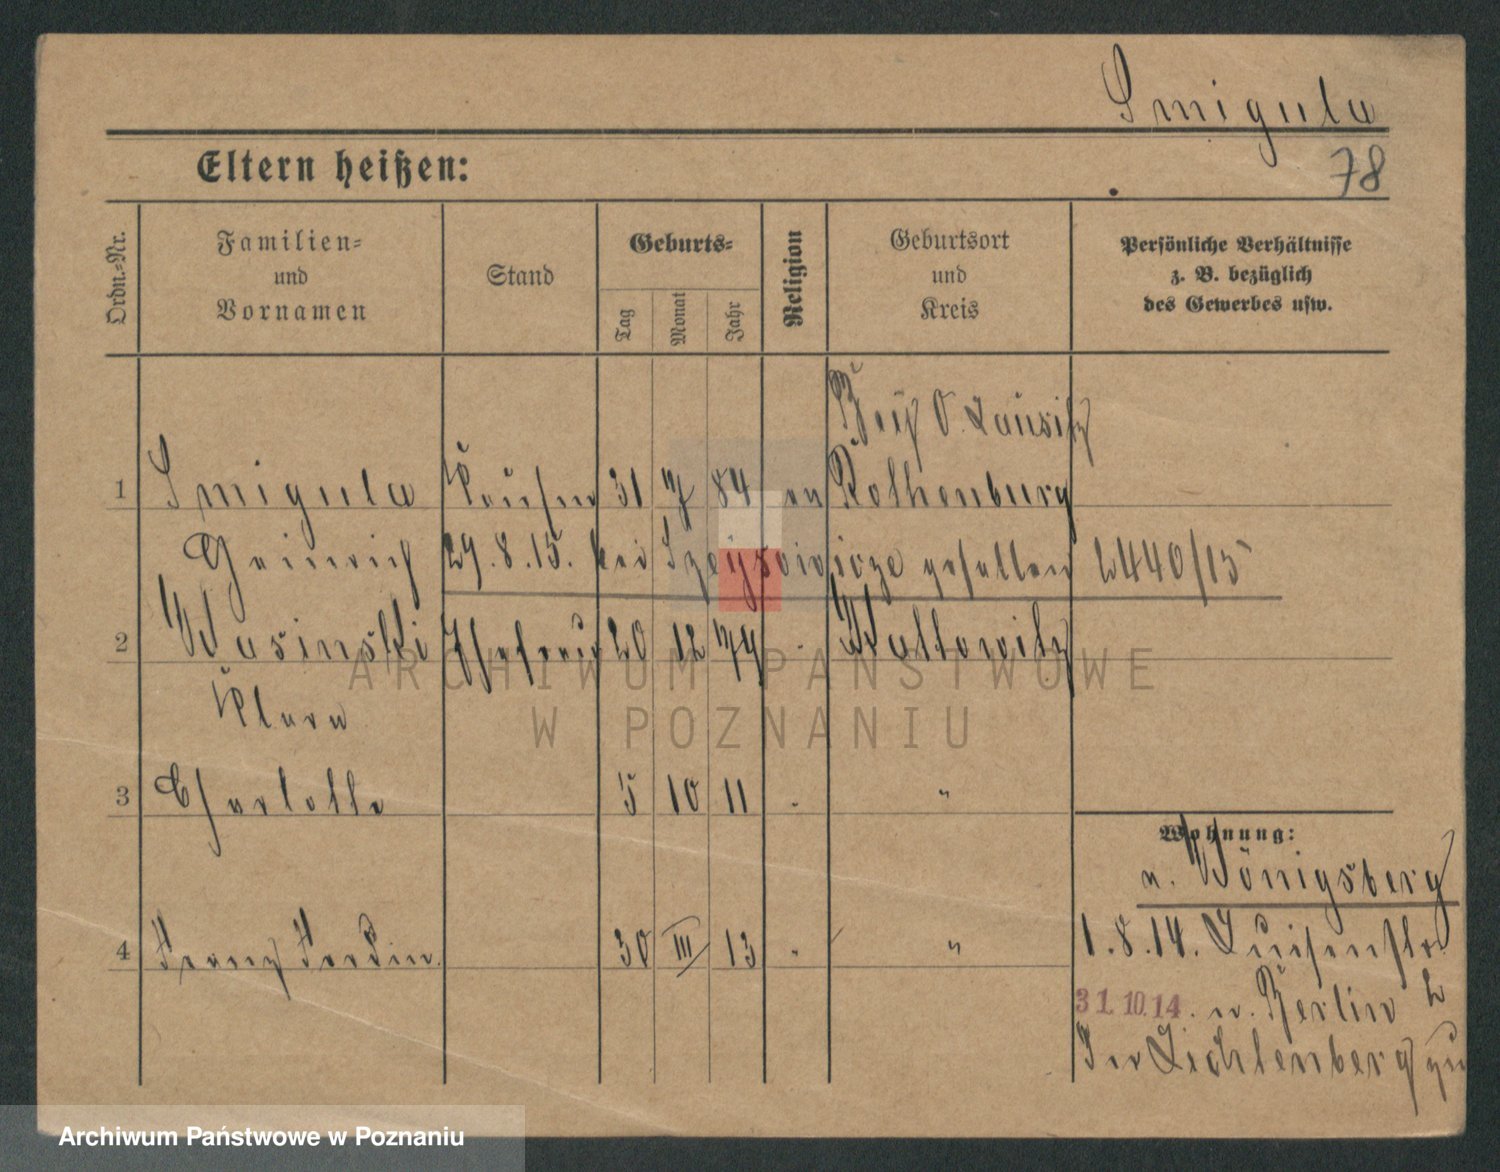 Smigula
Eltern heißen:
78
Ordn.-Nr.
Familien-
und
Vornamen
Stand
Geburts-
Tag
Monat
Jahr
Religion
Geburtsort
und
Kreis
Persönliche Verhältnisse
z. B. bezüglich
des Gewerbes usw.
O. Lausitz
1 Smigula 31 7 84 ev Rothenburg
Heinrich 29.8.15. bei gefallen 2440/15
2 Wasinski Ehefrau 20 12 79 " Kattowitz
Klara
3 Charlotte 5 10 11 " "
4 Franz 30 III 13 " "
Wohnung:
n. Königsberg
1.8.14. Luisenstr
31.10.14. n. Berlin
Lichtenberg
ARCHIWUM PAŃSTWOWE
W POZNANIU
Archiwum Państwowe w Poznaniu